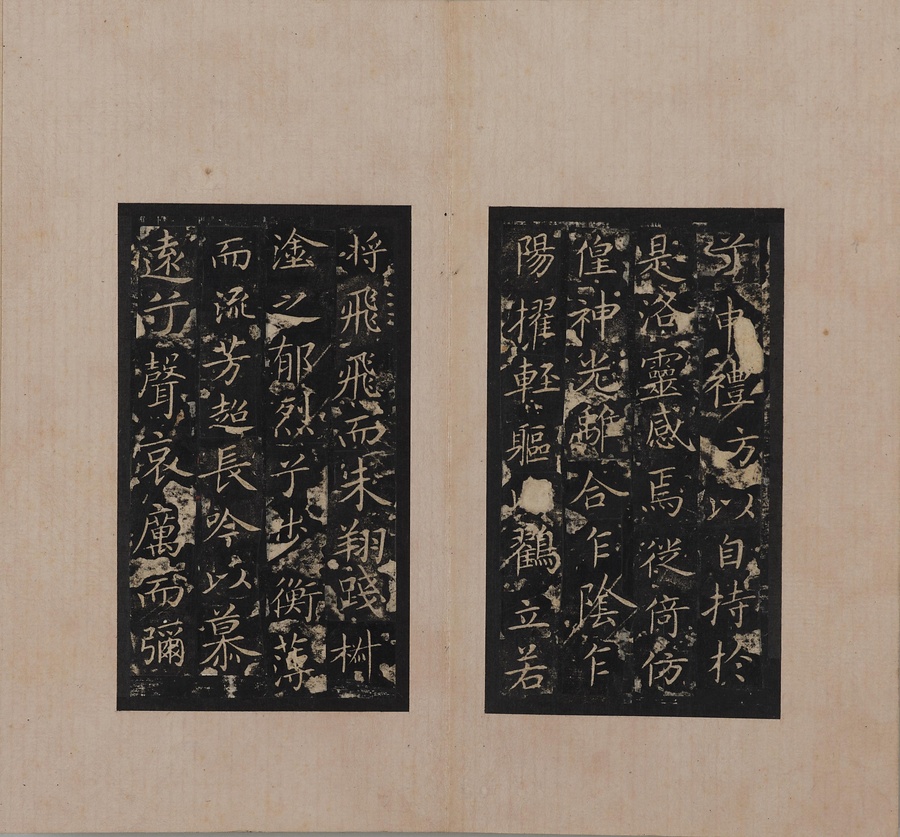 兮申禮方以自持於
是洛靈感焉徙倚仿
偟神光離合乍陰乍
陽擢輕軀鶴立若
将飛飛而未翔踐椒
塗之郁烈兮步衡薄
而流芳超長吟以慕
遠兮聲哀厲而彌